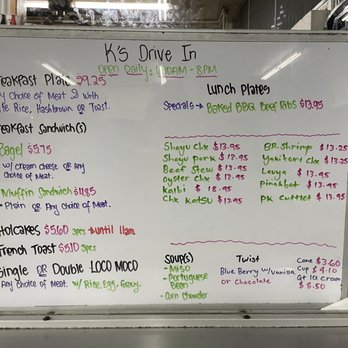 K's Drive In
Open Daily: AM - 8PM
Breakfast Plate $9.25
Any Choice of Meat 2 with
Rice, Hashbrown or Toast.
Breakfast Sandwich(s)
Bagel $5.75
w/ cream cheese or Any
Choice of Meat.
Muffin Sandwich
• Plain or Any Choice of Meat.
Hotcakes $5.60 3pcs → until 11am
French Toast $5.10 3pcs
Single or Double LOCO MOCO
Any Choice of Meat. w/ Rice, Egg, Gravy.
Lunch Plates
Specials → Baked BBQ Beef Ribs $13.95
Shoyu Chx $13.95
Shoyu Pork $13.95
Beef Stew $13.95
Oyster Chx $13.95
Kalbi $18.95
Chx Katsu $13.95
BR. Shrimp $13.25
Yakitori Chx $13.25
Lavya $13.95
Pinakbet $13.95
PK Cutlet $13.95
Soup(s)
- Miso
- Portuguese
Bean
- Corn Chowder
Twist
Blue Berry w/ Vanilla
or Chocolate
Cone $3.60
Cup $4.10
Qt Ice Cream
$8.50